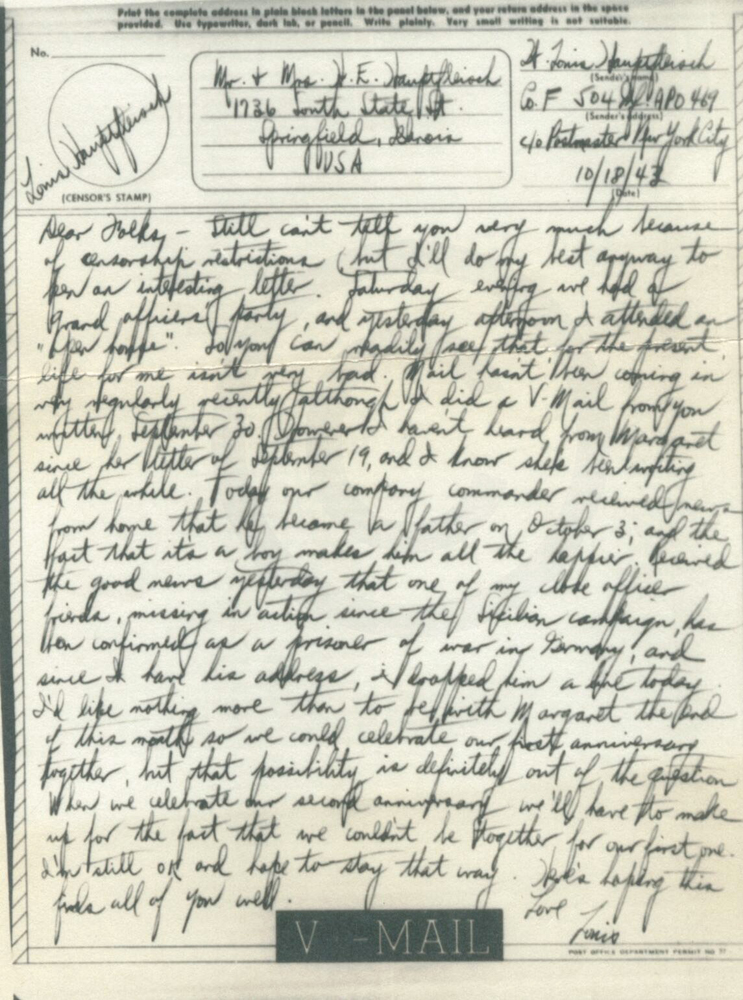 Print the complete address in plain block letters in the panel below, and your return address in the space
provided. Use typewriter, dark ink, or pencil. Write plainly. Very small writing is not suitable.
No.
Mr. + Mrs. W. E. Hauptfleisch
1736 South State St.
Springfield, Illinois
USA
Lt. Louis Hauptfleisch
(Sender's name)
Co. F 504 APO 469
(Sender's address)
c/o Postmaster New York City
10/18/43
(Date)
Louis Hauptfleisch
(CENSOR'S STAMP)
Dear Folks, – Still can't tell you very much because
of censorship restrictions, but I'll do my best anyway to
pen an interesting letter. Saturday evening we had a
grand officers' party, and yesterday afternoon I attended an
"open house". So you can readily see that for the present
life for me isn't very bad. Mail hasn't been coming in
very regularly recently, although I did a V-Mail from you
written September 30. However I haven't heard from Margaret
since her letter of September 19, and I know she's been writing
all the while. Today our company commander received news
from home that he became a father on October 3; and the
fact that it's a boy makes him all the happier. Received
the good news yesterday that one of my close officer
friends, missing in action since the Sicilian campaign, has
been confirmed as a prisoner of war in Germany, and
since I have his address, I dropped him a line today.
I'd like nothing more than to be with Margaret the end
of this month so we could celebrate our first anniversary
together, but that possibility is definitely out of the question.
When we celebrate our second anniversary we'll have to make
up for the fact that we couldn't be together for our first one.
I'm still ok and hope to stay that way. Here's hoping this
finds all of you well.
Love
Louis
V-MAIL
POST OFFICE DEPARTMENT PERMIT NO.